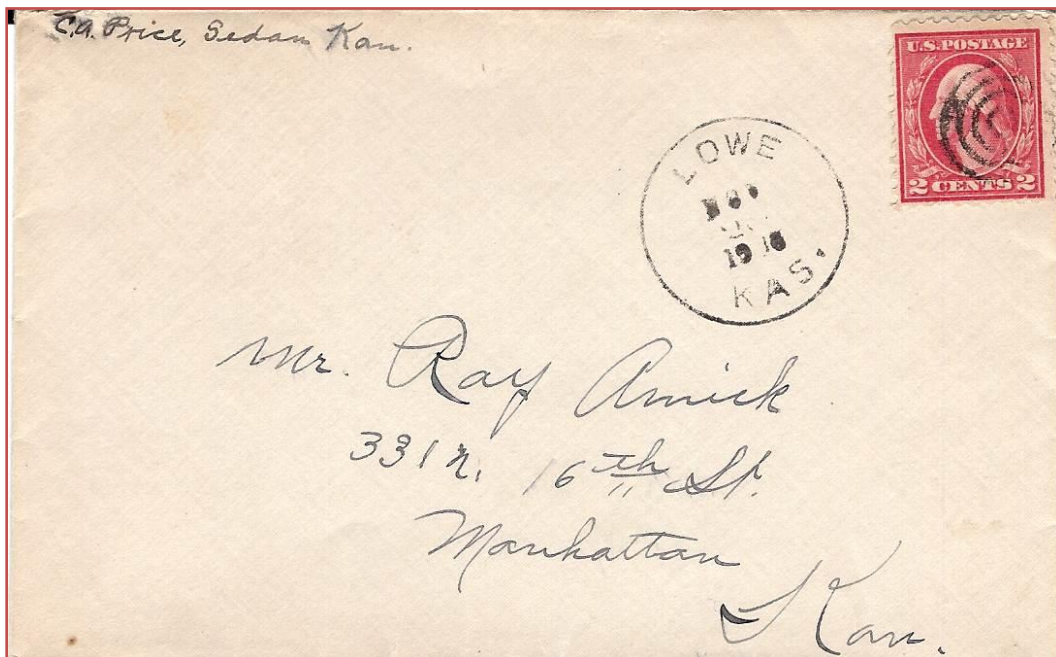 C.A. Price, Sedan Kan.
U.S. POSTAGE
2 CENTS 2
LOWE
KAS.
Mr. Ray Amick
331 N. 16th St.
Manhattan
Kan.